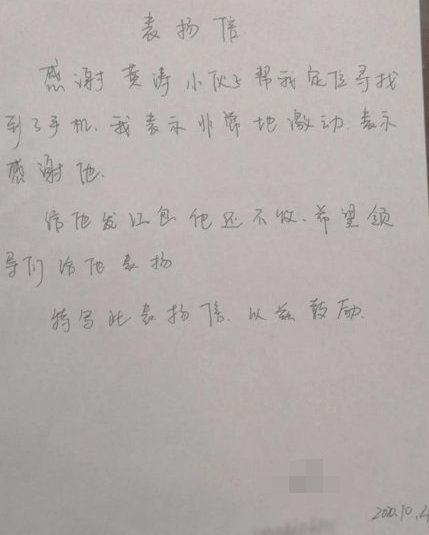 表扬信
感谢黄涛小伙子帮我定位寻找
到了手机，我表示非常地激动，表示
感谢他。
给他发红包他还不收，希望领
导们给他表扬
特写此表扬信，以兹鼓励。
2020.10.4